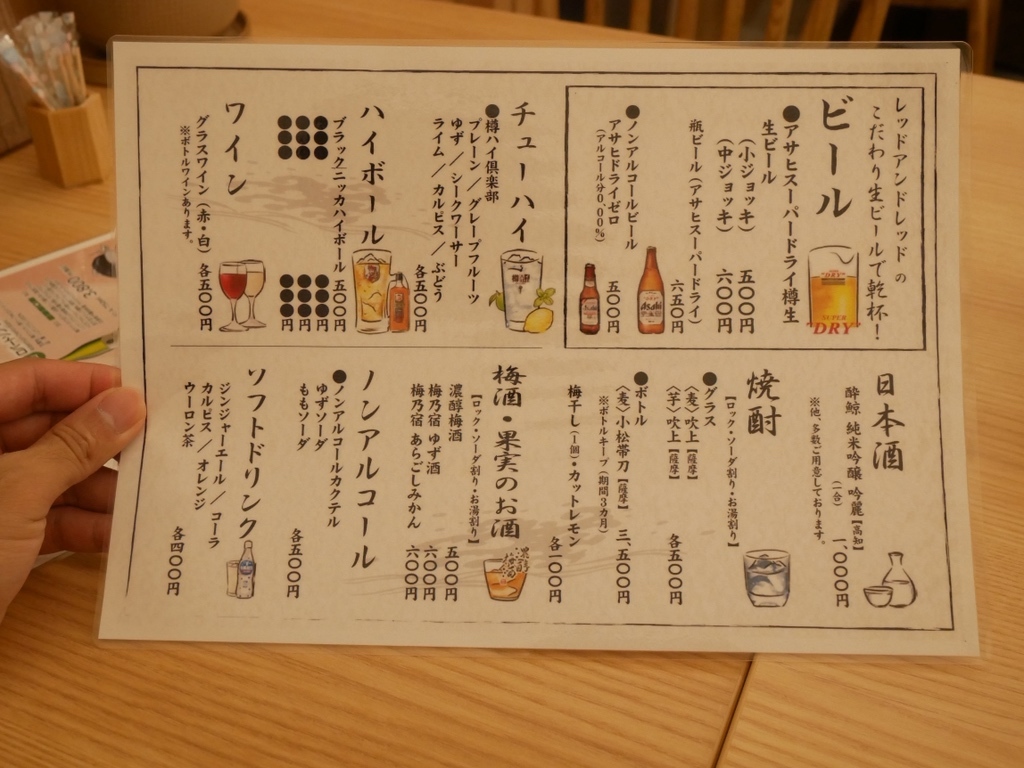 レッドアンドレッドの
こだわり生ビールで乾杯！
ビール
●アサヒスーパードライ樽生
生ビール
（小ジョッキ） 五〇〇円
（中ジョッキ） 六〇〇円
瓶ビール（アサヒスーパードライ） 六五〇円
●ノンアルコールビール
アサヒドライゼロ 五〇〇円
（アルコール分0.00%）
DRY
SUPER
DRY
Asahi
チューハイ
●樽ハイ倶楽部
プレーン／グレープフルーツ
ゆず／シークワーサー
ライム／カルピス／ぶどう
各五〇〇円
ハイボール
ブラックニッカハイボール 五〇〇円
●●● ●●●円
●●● ●●●円
●●● ●●●円
ワイン
グラスワイン（赤・白） 各五〇〇円
※ボトルワインあります。
日本酒
酔鯨 純米吟醸 吟麗【高知】
（一合） 一、〇〇〇円
※他、多数ご用意しております。
焼酎
【ロック・ソーダ割り・お湯割り】
●グラス
〈麦〉吹上【薩摩】
〈芋〉吹上【薩摩】
各五〇〇円
●ボトル
〈麦〉小松帯刀【薩摩】 三、五〇〇円
※ボトルキープ（期間3カ月）
梅干し（一個）・カットレモン 各一〇〇円
梅酒・果実のお酒
【ロック・ソーダ割り・お湯割り】
濃醇梅酒 五〇〇円
梅乃宿 ゆず酒 六〇〇円
梅乃宿 あらごしみかん 六〇〇円
ノンアルコール
●ノンアルコールカクテル
ゆずソーダ
ももソーダ
各五〇〇円
ソフトドリンク
ジンジャーエール／コーラ
カルピス／オレンジ
ウーロン茶
各四〇〇円